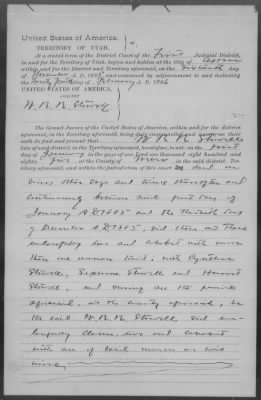 United States of America.
TERRITORY OF UTAH.
At a stated term of the District Court of the First Judicial District,
in and for the Territory of Utah, begun and holden at the City of
within and for the District and Territory aforesaid, on the day
of A. D. 1885 and continued by adjournment to and including
the day of February A. D. 1886
UNITED STATES OF AMERICA,
against
W. R. R. Stowell
The Grand Jurors of the United States of America, within and for the district
and Territory aforesaid, being duly and sworn
do find and present that W. R. R. Stowell
late of said district, in the Territory aforesaid, heretofore, to-wit: on the first day
of January in the year of our Lord one thousand eight hundred and
eighty five at the County of in the said district, Territory
aforesaid, and within the jurisdiction of this court and on
divers other days and times thereafter and
continuously between said first day of
January A D 1885 and the day
of December A D 1885, did then and there
unlawfully live and cohabit with more
than one woman to wit, with Cynthia
Stowell, Stowell and Harriet
Stowell, and during all the period
aforesaid, at the county aforesaid, he
the said W. R. R. Stowell, did
unlawfully claim, live and cohabit
with all of said women as his
wives.